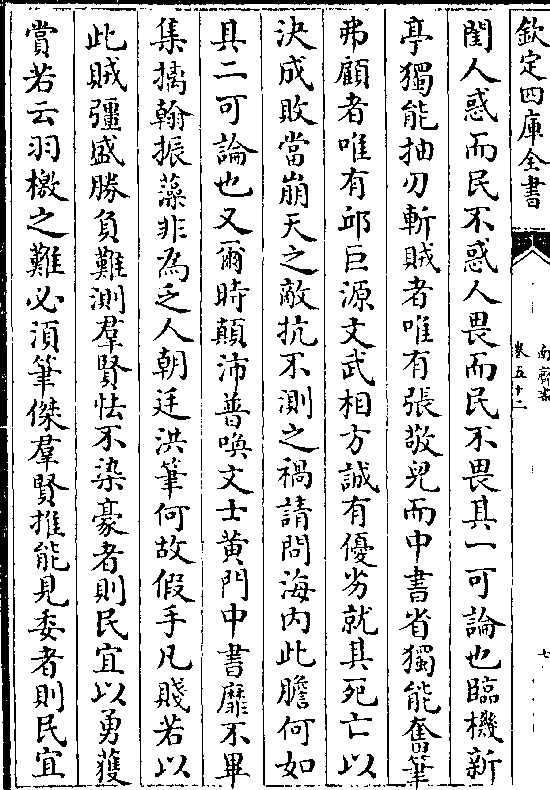 欽定四庫全書
南齊書
卷五十二
七
闇人惑而民不惑人畏而民不畏其一可論也臨機新
亭獨能抽刃斬賊者唯有張敬兒而中書省獨能奮筆
弗顧者唯有邱巨源文武相方誠有優劣就其死亡以
決成敗當崩天之敵抗不測之禍請問海内此膽何如
其二可論也又爾時顛沛普喚文士黄門中書靡不畢
集摛翰振藻非為乏人朝廷洪筆何故假手凡賤若以
此賊彊盛勝負難測羣賢怯不染豪者則民宜以勇獲
賞若云羽檄之難必須筆傑羣賢推能見委者則民宜